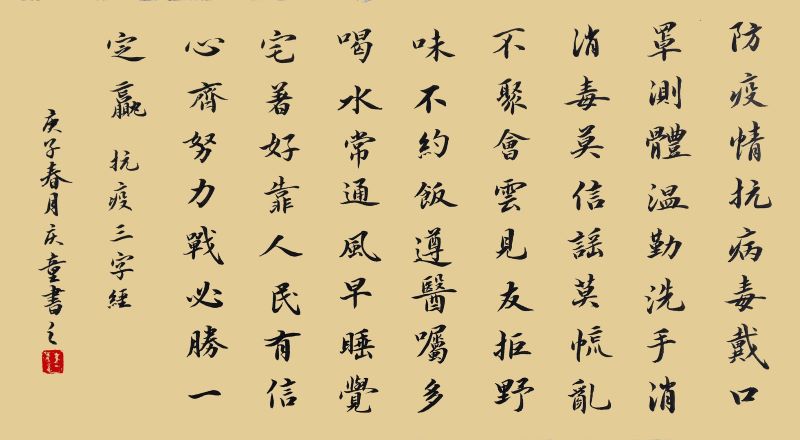 防疫情抗病毒戴口
罩測體溫勤洗手消
消毒莫信謠莫慌亂
不聚會雲見友拒野
味不約飯遵醫囑多
喝水常通風早睡覺
宅著好靠人民有信
心齊努力戰必勝一
定贏 抗疫三字經
庚子春月庆童書之